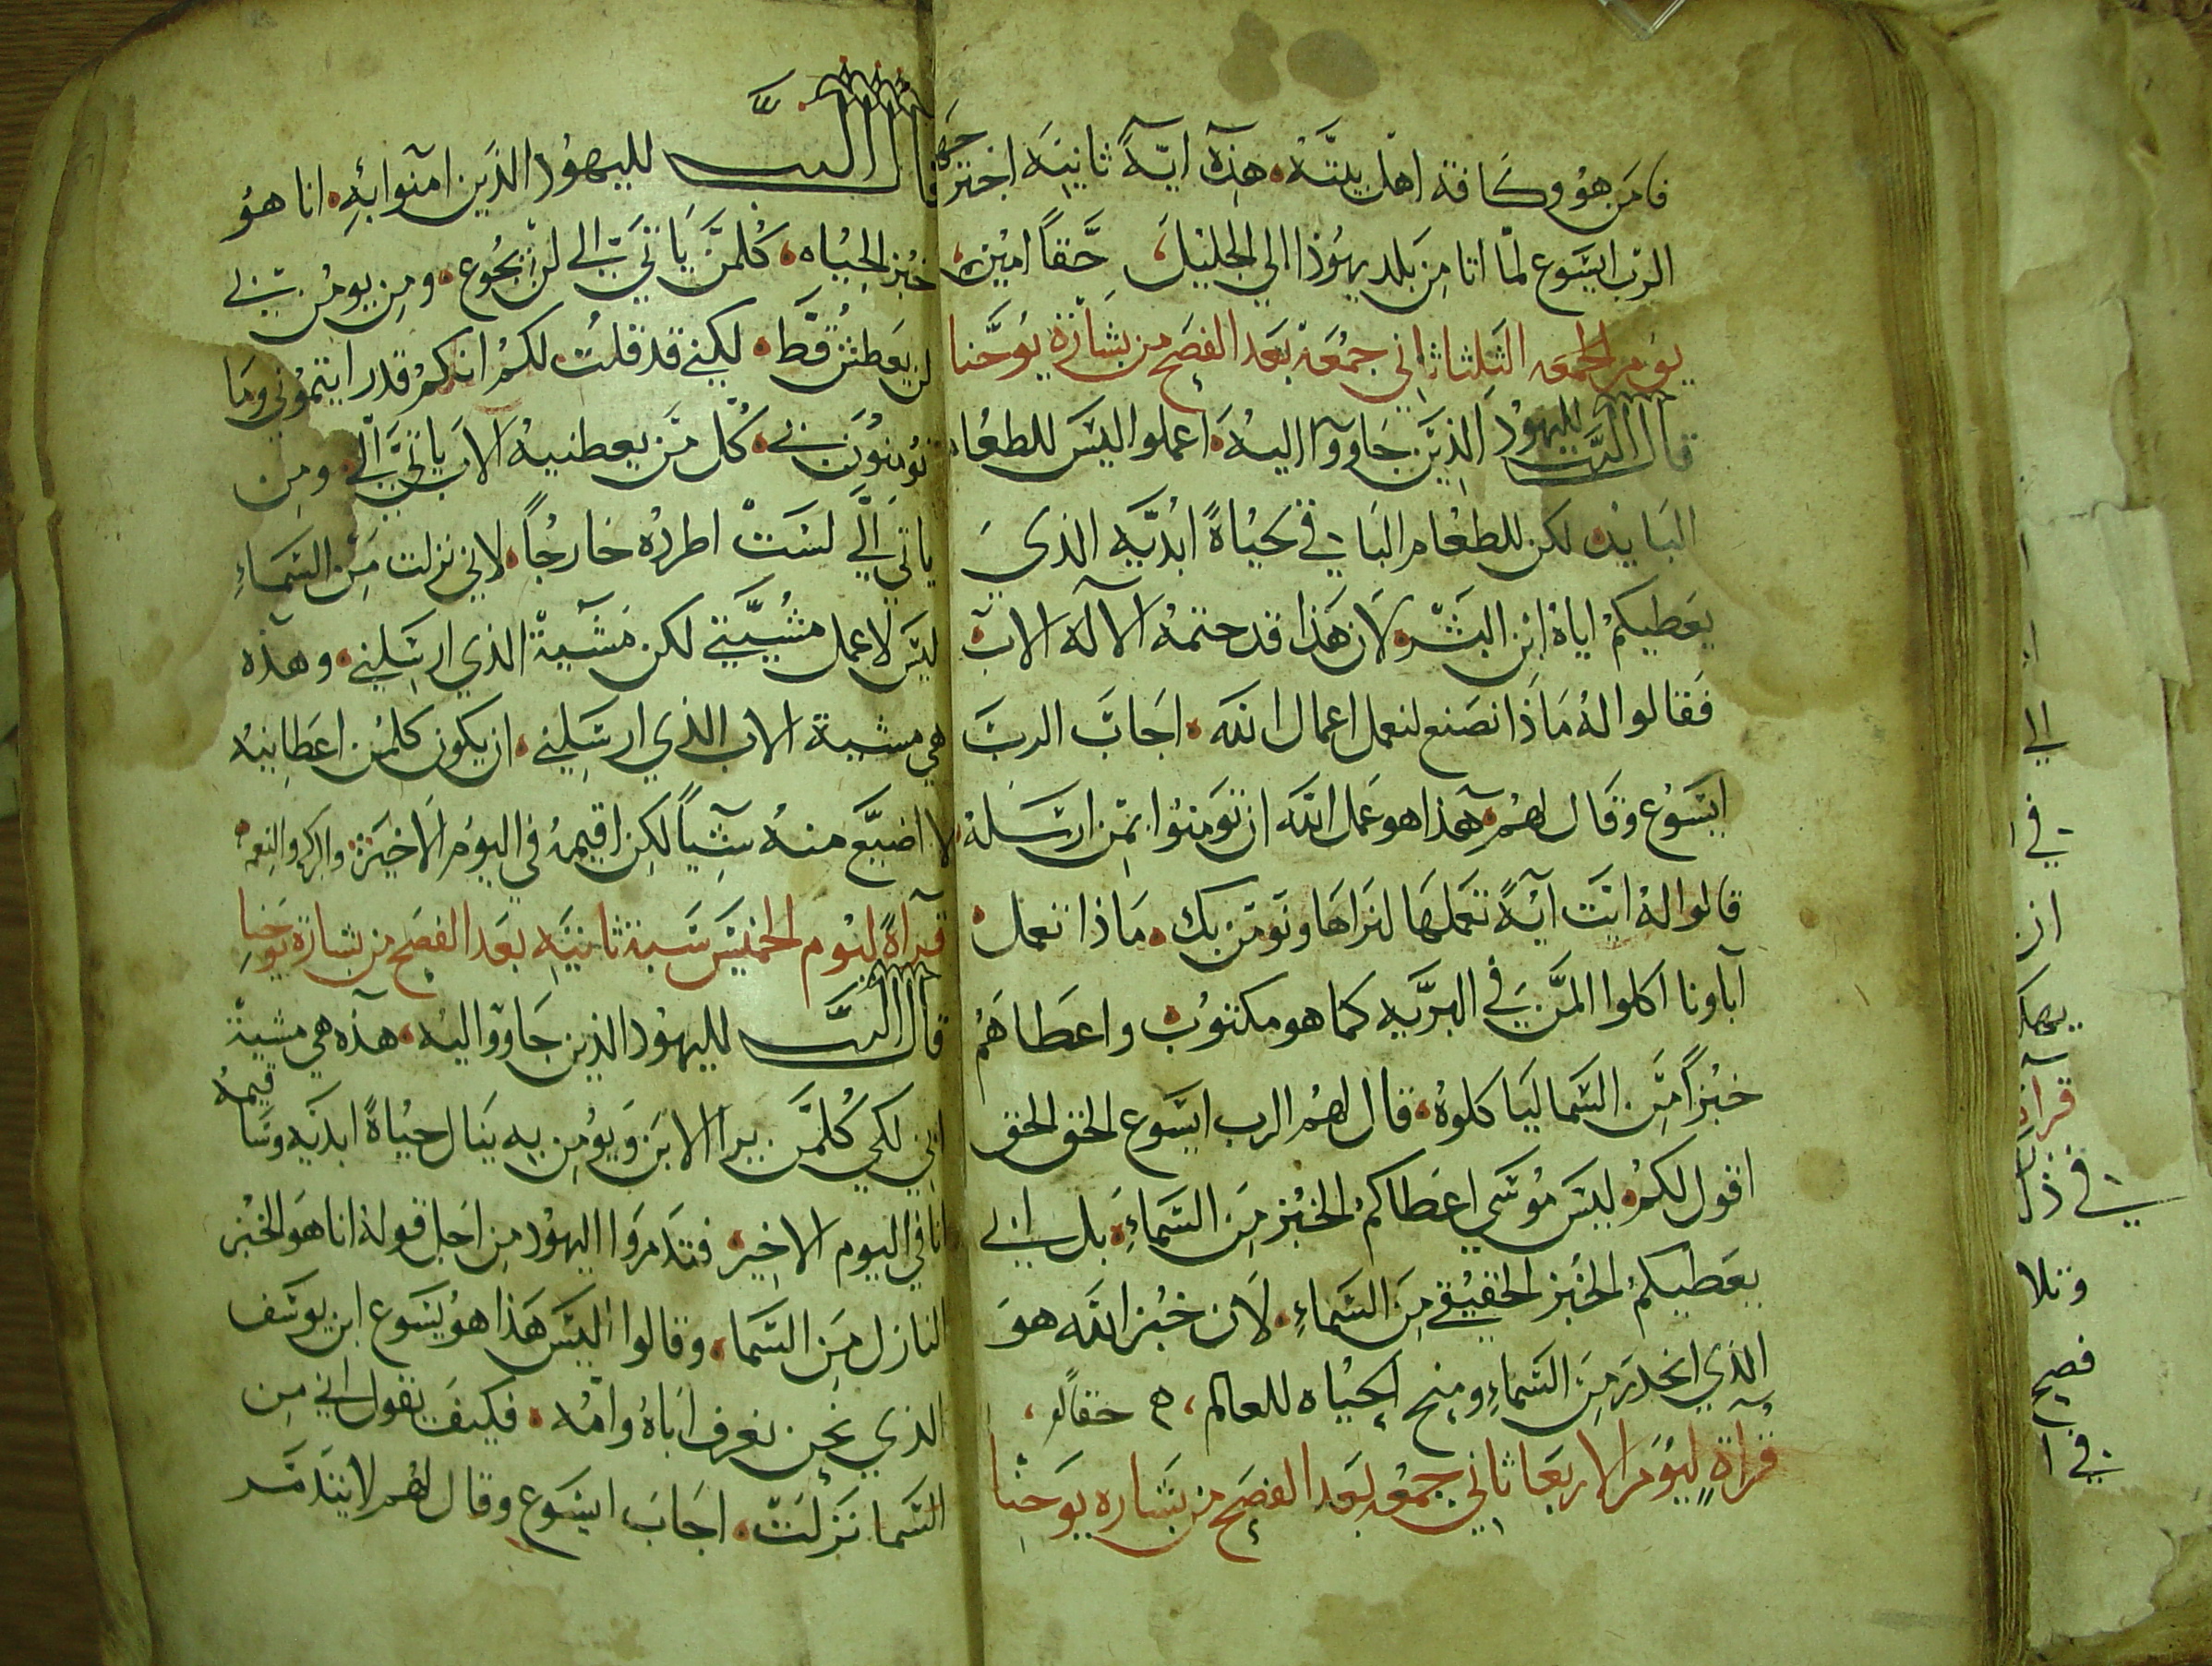 فامن هو وكافة اهل بيته هذه اية ثانيه اجترحها
الرب ايسوع لما اتا من بلد يهوذا الي الجليل حقاً امين
يوم الجمعه الثلثا ثاني جمعه بعد الفصح من بشارة يوحنا
قال الرب لليهود الذين جاووا اليه اعملوا ليس للطعام
البايد لكن للطعام الباقي لحياةً ابديه الذي
يعطيكم اياه ابن البشر لان هذا قد ختمه الاله الاب
فقالوا له ماذا نصنع لنعمل اعمال الله اجاب الرب
ايسوع وقال لهم هذا هو عمل الله ان تومنوا بمن ارسله
قالوا له انت آيةً تعملها لنراها ونومن بك ماذا تعمل
آباونا اكلوا المن في البريه كما هو مكتوب واعطاهم
خبزاً من السما لياكلوه قال لهم الرب ايسوع الحق الحق
اقول لكم ليس موسي اعطاكم الخبز من السماء بل ابي
يعطيكم الخبز الحقيقي من السماء لان خبز الله هو
الذي انحدر من السماء ومنح الحياه للعالم
قراة ليوم الاربعا ثاني جمعه بعد الفصح من بشاره يوحنا
قال الرب لليهود الذين امنوا به انا هو
خبز الحياه كلمن ياتي الي لن يجوع ومن يومن بي
لن يعطش قط لكني قد قلت لكم انكم قد رايتموني وما
تومنون بي كل من يعطنيه الاب ياتي الي ومن
ياتي الي لست اطرده خارجاً لاني نزلت من السماء
ليس لاعمل مشيتي لكن مشية الذي ارسلني وهذه
هي مشية الاب الذي ارسلني ان يكون كلمن اعطانيه
لا اضيع منه شياً لكن اقيمه في اليوم الاخير
قرآة ليوم الخميس سبة ثانيه بعد الفصح من بشارة يوحنا
قال الرب لليهود الذين جاووا اليه هذه هي مشية
ابي لكي كلمن يرا الابن ويومن به ينال حياةً ابديه وساقيمه
انا في اليوم الاخير فتدمروا اليهود من اجل قوله انا هو الخبز
النازل من السما وقالوا اليس هذا هو يسوع ابن يوسف
الذي نحن نعرف اباه وامه فكيف يقول اني من
السما نزلت اجاب ايسوع وقال لهم لا يتدمر